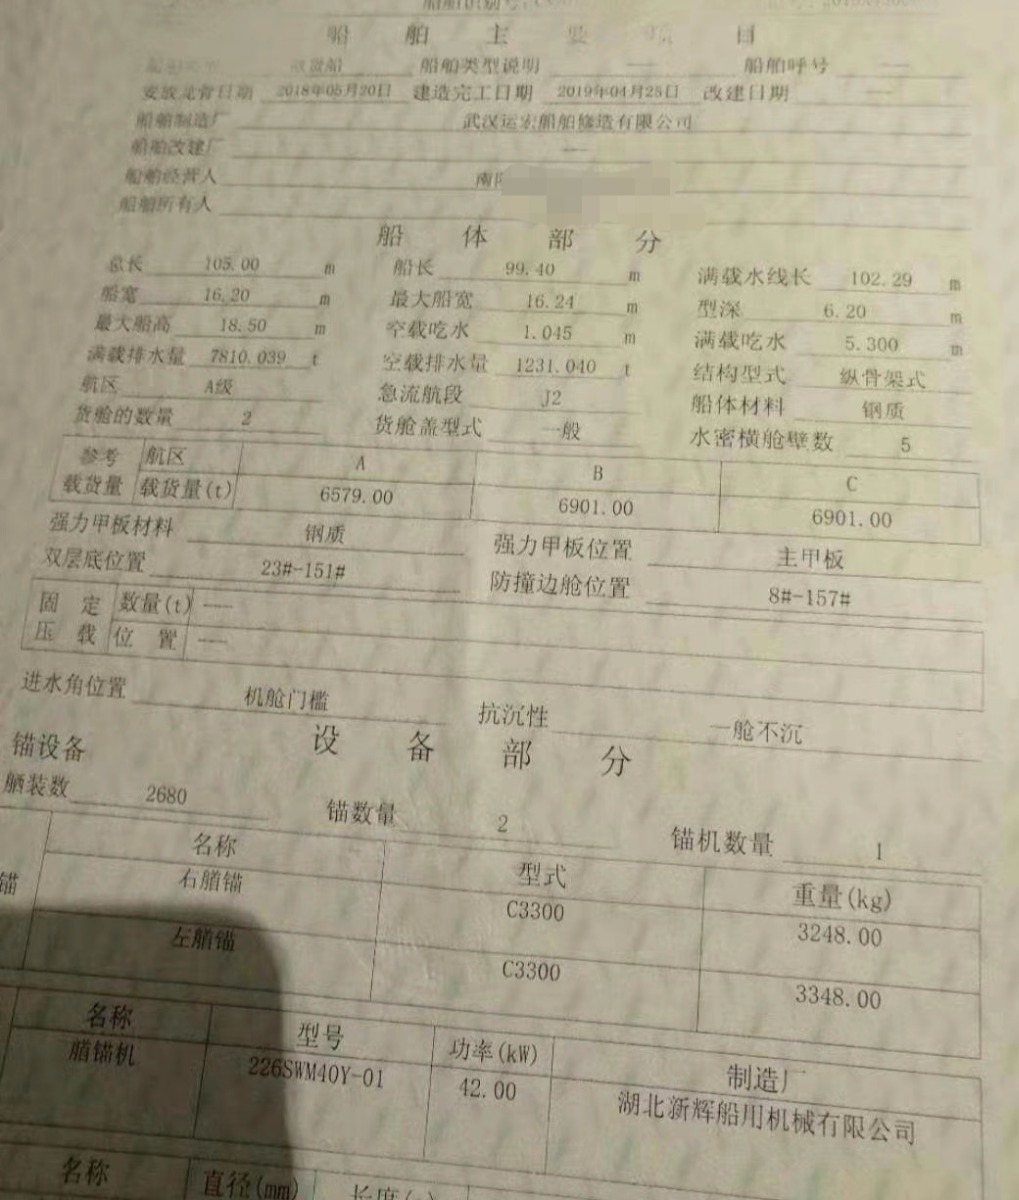 船舶识别号
船舶主要项目
散货船 船舶类型说明 — 船舶呼号 —
安放龙骨日期 2018年05月20日 建造完工日期 2019年04月25日 改建日期 —
船舶制造厂 武汉运宏船舶修造有限公司
船舶改建厂 —
船舶经营人 南
船舶所有人
船体部分
总长 105.00 m 船长 99.40 m 满载水线长 102.29 m
船宽 16.20 m 最大船宽 16.24 m 型深 6.20 m
最大船高 18.50 m 空载吃水 1.045 m 满载吃水 5.300 m
满载排水量 7810.039 t 空载排水量 1231.040 t 结构型式 纵骨架式
航区 A级 急流航段 J2 船体材料 钢质
货舱的数量 2 货舱盖型式 一般 水密横舱壁数 5
参考 航区 A B C
载货量 载货量(t) 6579.00 6901.00 6901.00
强力甲板材料 钢质 强力甲板位置 主甲板
双层底位置 23#-151# 防撞边舱位置 8#-157#
固定 数量(t) —
压载 位置 —
进水角位置 机舱门槛 抗沉性 一舱不沉
设备部分
锚设备
舾装数 2680 锚数量 2 锚机数量 1
名称 型式 重量(kg)
锚 右艏锚 C3300 3248.00
左艏锚 C3300 3348.00
名称 型号 功率(kW) 制造厂
艏锚机 226SWM40Y-01 42.00 湖北新辉船用机械有限公司
名称 直径(mm) 长度